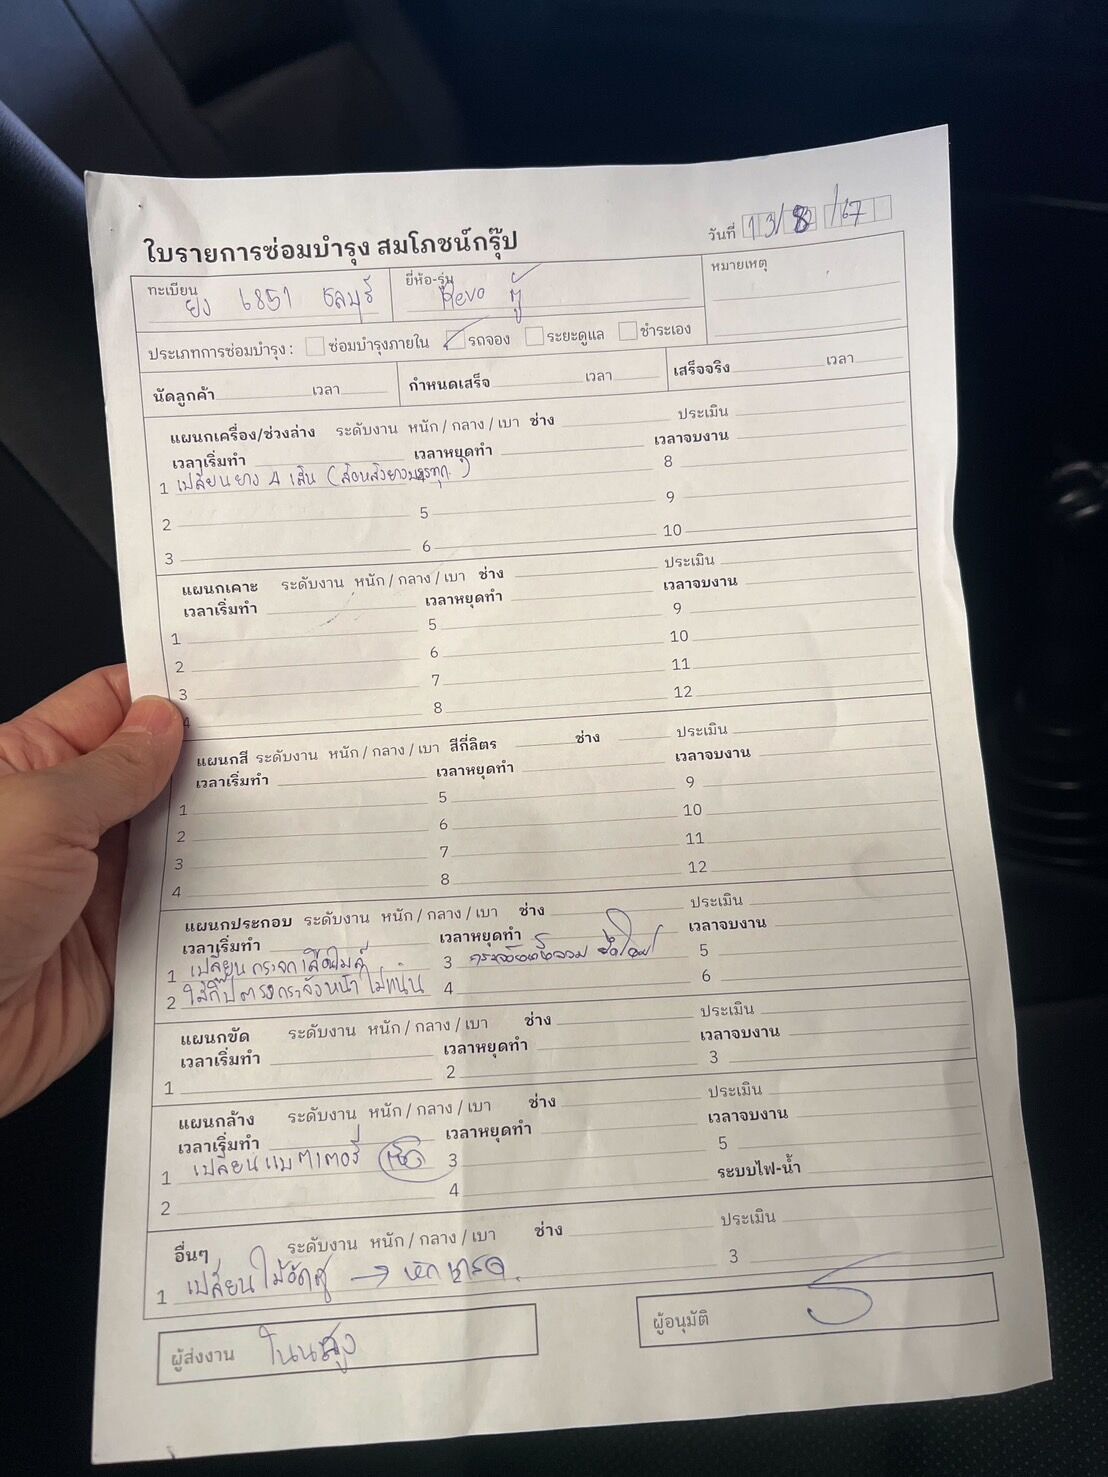 ใบรายการซ่อมบำรุง สมโภชน์กรุ๊ป
วันที่ 13/8/67
ทะเบียน ยง 6851 ชลบุรี ยี่ห้อ-รุ่น Revo ตู้ หมายเหตุ
ประเภทการซ่อมบำรุง : ซ่อมบำรุงภายใน รถจอง ระยะดูแล ชำระเอง
นัดลูกค้า เวลา กำหนดเสร็จ เวลา เสร็จจริง เวลา
แผนกเครื่อง/ช่วงล่าง ระดับงาน หนัก / กลาง / เบา ช่าง ประเมิน
เวลาเริ่มทำ เวลาหยุดทำ เวลาจบงาน
1 เปลี่ยนยาง 4 เส้น (ล้อหลังยางบรรทุก) 8
2 5 9
3 6 10
แผนกเคาะ ระดับงาน หนัก / กลาง / เบา ช่าง ประเมิน
เวลาเริ่มทำ เวลาหยุดทำ เวลาจบงาน
1 5 9
2 6 10
3 7 11
4 8 12
แผนกสี ระดับงาน หนัก / กลาง / เบา สีกี่ลิตร ช่าง ประเมิน
เวลาเริ่มทำ เวลาหยุดทำ เวลาจบงาน
1 5 9
2 6 10
3 7 11
4 8 12
แผนกประกอบ ระดับงาน หนัก / กลาง / เบา ช่าง ประเมิน
เวลาเริ่มทำ เวลาหยุดทำ เวลาจบงาน
1 เปลี่ยนกระจก 3 5
2 ใส่กิ๊ปตรงกระจังหน้า ไม่แน่น 4 6
แผนกขัด ระดับงาน หนัก / กลาง / เบา ช่าง ประเมิน
เวลาเริ่มทำ เวลาหยุดทำ เวลาจบงาน
1 2 3
แผนกล้าง ระดับงาน หนัก / กลาง / เบา ช่าง ประเมิน
เวลาเริ่มทำ เวลาหยุดทำ เวลาจบงาน
1 เปลี่ยนแบตเตอรี่ 3 5
2 4 ระบบไฟ-น้ำ
อื่นๆ ระดับงาน หนัก / กลาง / เบา ช่าง ประเมิน
1 เปลี่ยนไม้อัดตู้ → 3
ผู้ส่งงาน ผู้อนุมัติ